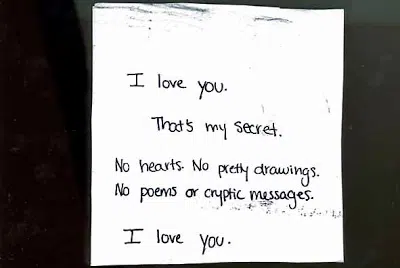 I love you.
That's my secret.
No hearts. No pretty drawings.
No poems or cryptic messages.
I love you.